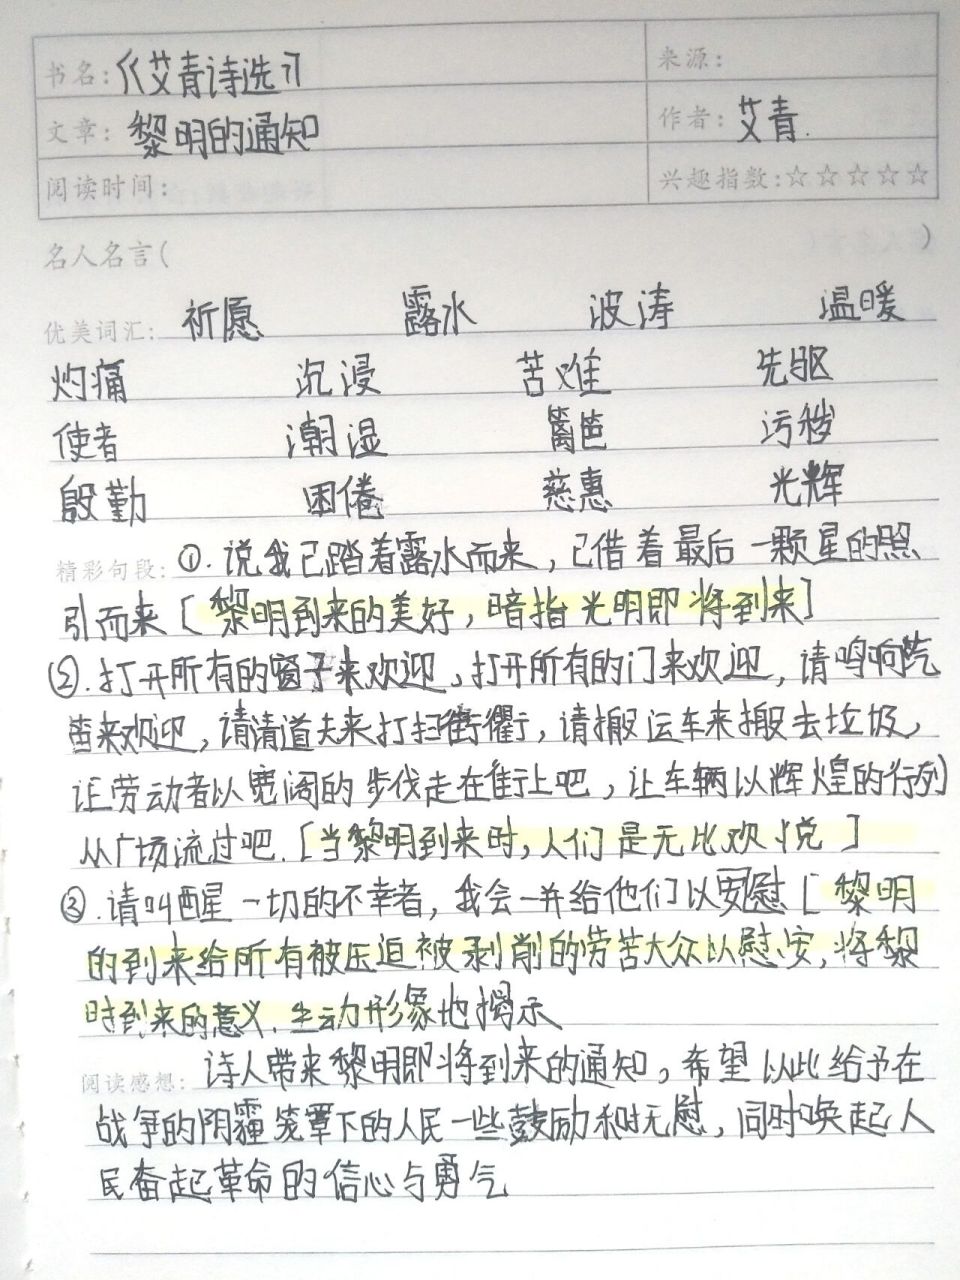 书名:《艾青诗选》 来源:
文章:黎明的通知 作者:艾青.
阅读时间: 兴趣指数:☆☆☆☆☆
名人名言( )
优美词汇: 祈愿 露水 波涛 温暖
灼痛 沉浸 苦难 先驱
使者 潮湿 篱笆 污秽
殷勤 困倦 慈惠 光辉
精彩句段: ①.说我已踏着露水而来,已借着最后一颗星的照
引而来[黎明到来的美好,暗指光明即将到来]
②.打开所有的窗子来欢迎,打开所有的门来欢迎,请鸣响汽
笛来欢迎,请清道夫来打扫街衢,请搬运车来搬去垃圾,
让劳动者以宽阔的步伐走在街上吧,让车辆以辉煌的行列
从广场流过吧.[当黎明到来时,人们是无比欢悦]
③.请叫醒一切的不幸者,我会一并给他们以安慰[黎明
的到来给所有被压迫被剥削的劳苦大众以慰安,将黎
时到来的意义.生动形象地揭示
阅读感想: 诗人带来黎明即将到来的通知,希望以此给予在
战争的阴霾笼罩下的人民一些鼓励和慰,同时唤起人
民奋起革命的信心与勇气